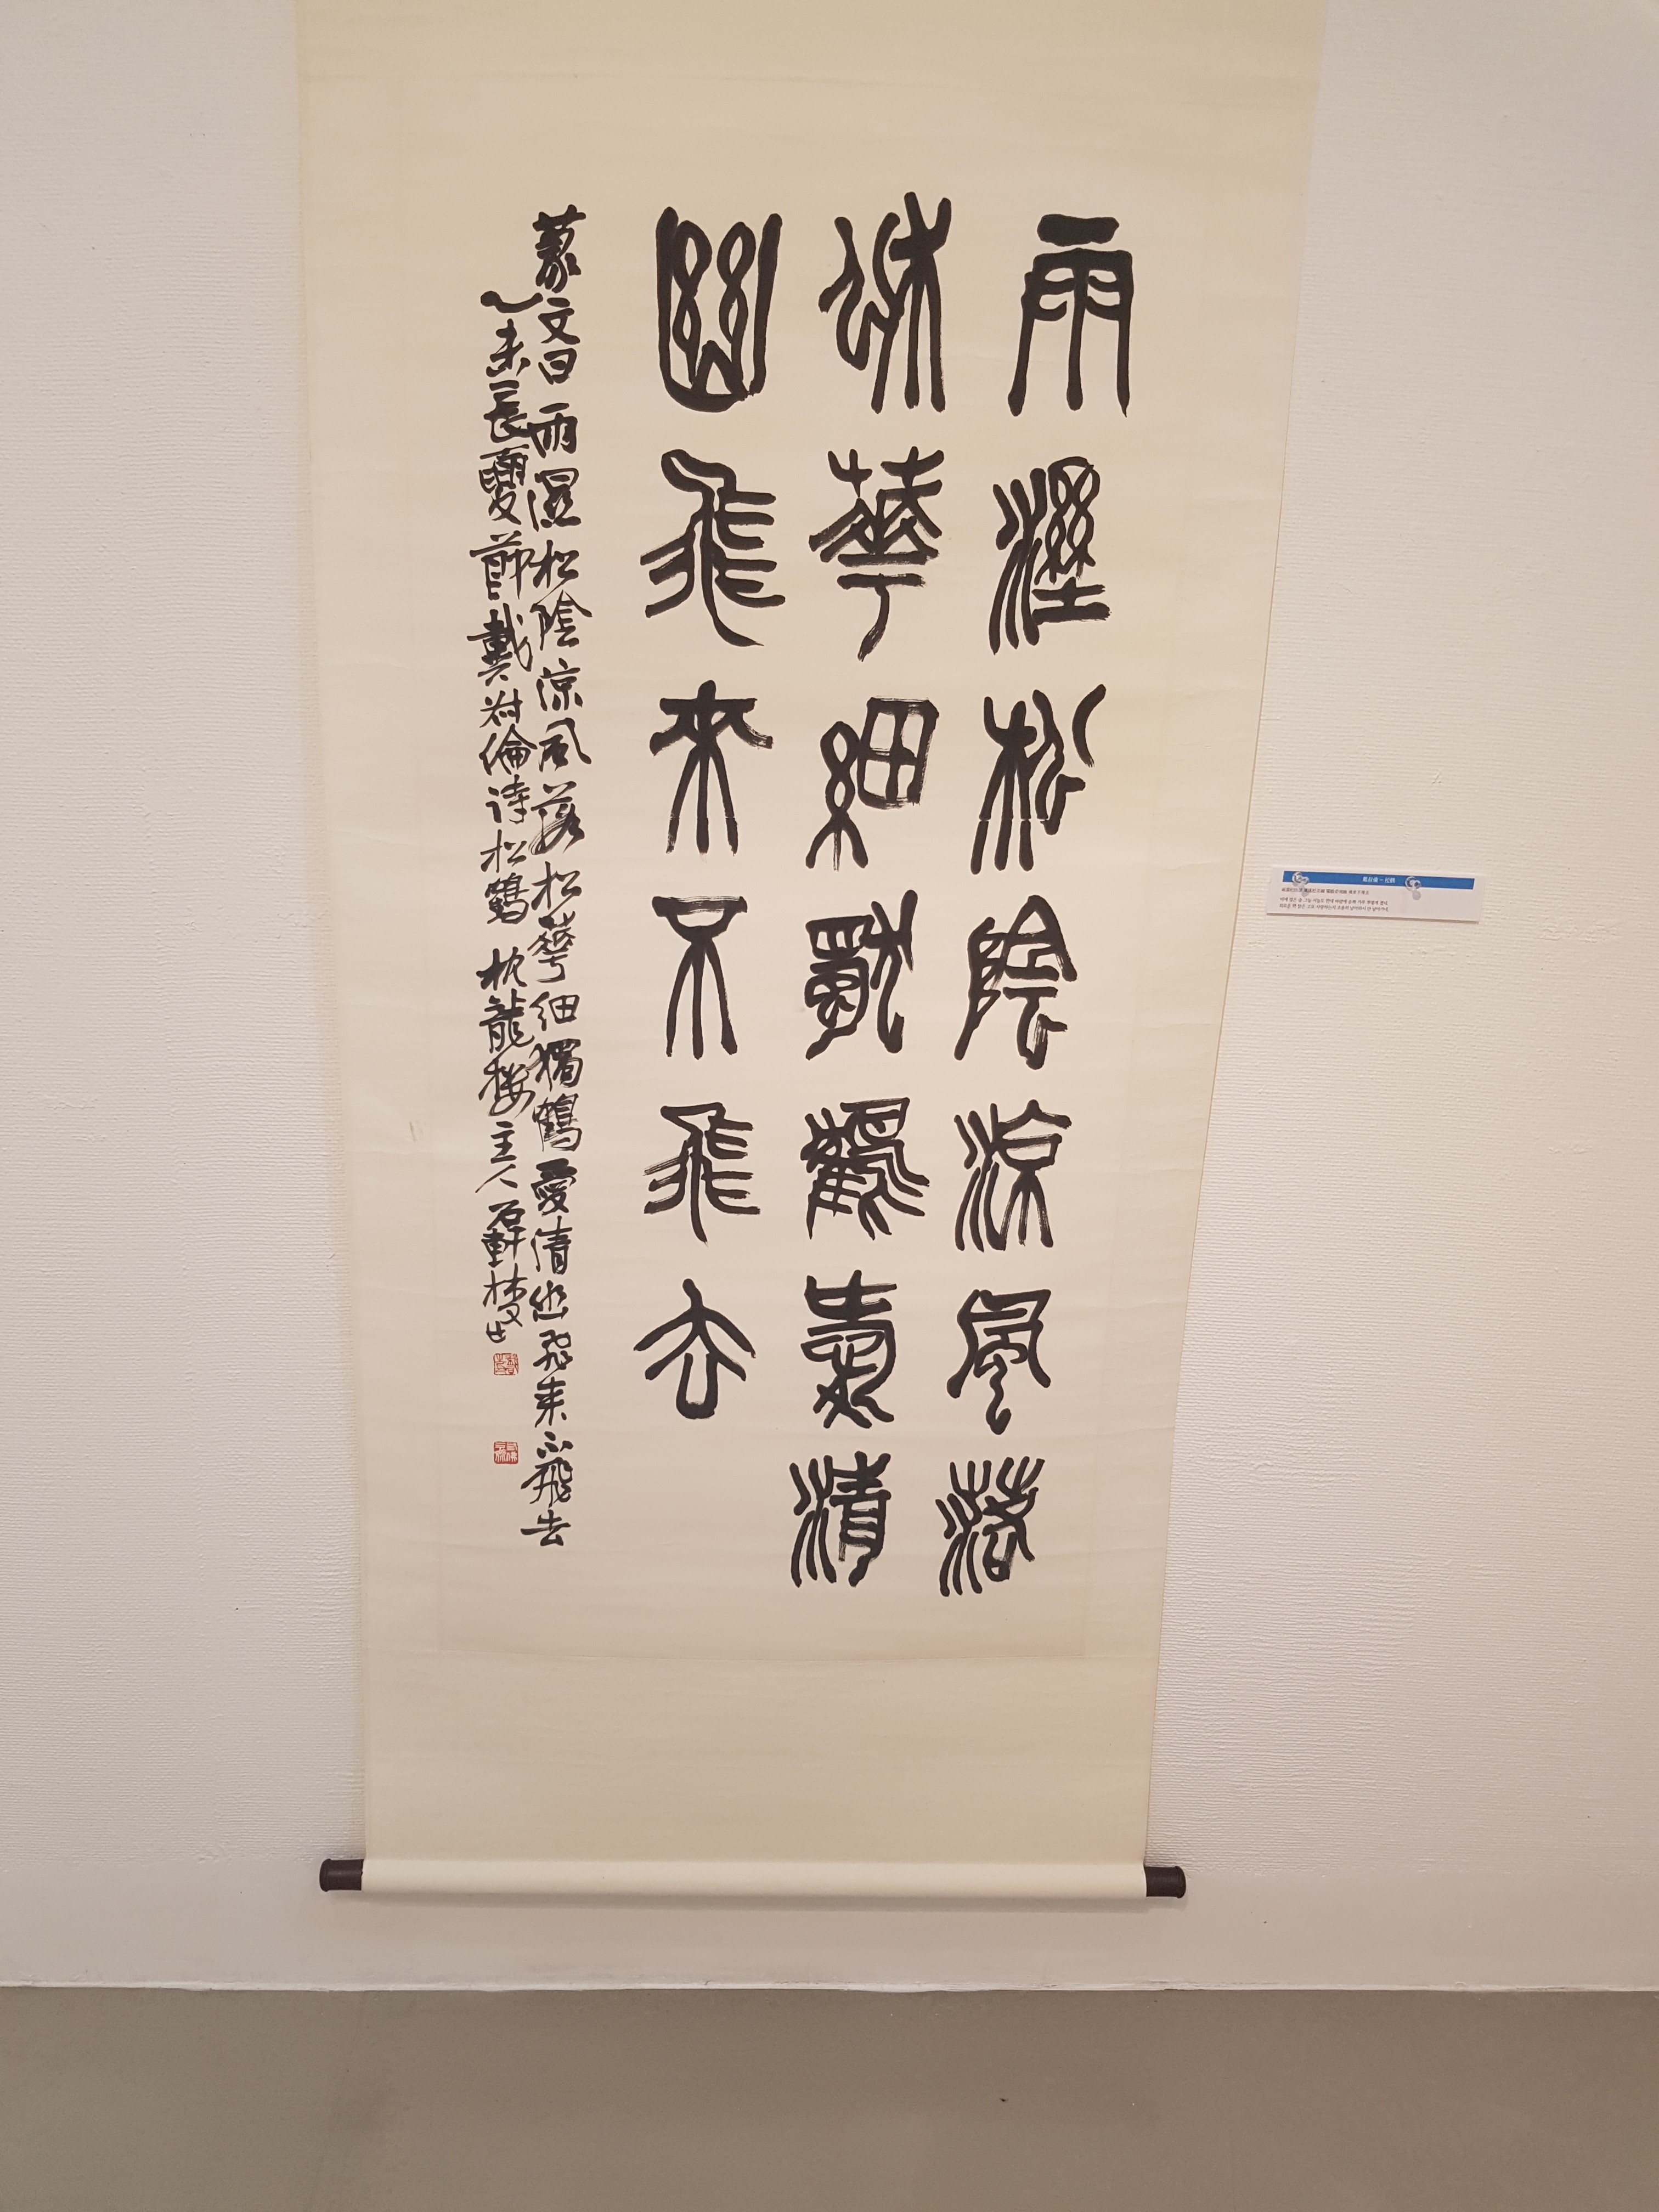 雨溼松陰涼風落
松華細獨鶴愛清
幽飛來不飛去
篆文曰雨濕松陰涼風落松華細獨鶴愛清幽飛來不飛去
乙未長夏節戴叔倫詩松鶴 枕龍樓主人石軒